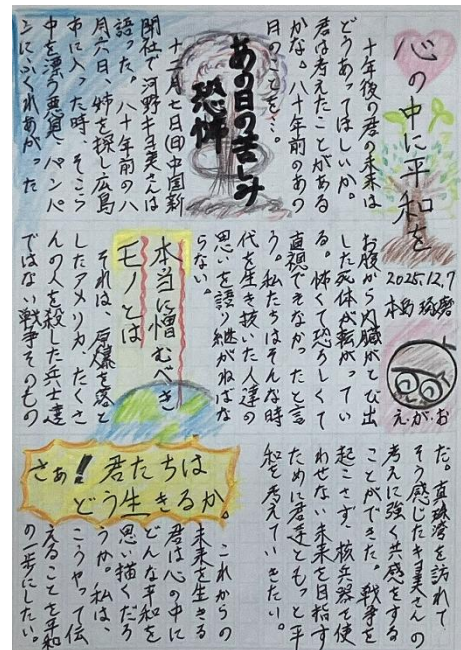 心の中に平和を
2025.12.7
本島 琢磨
え・が・お
十年後の君の未来は
どうあってほしいか。
君は考えたことがある
かな。八十年前のあの
日のことを…。
あの日の苦しみ
恐怖
十二月七日(日)中国新
聞社で河野キヨ美さんは
語った。八十年前の八
月六日、姉を探し広島
市に入った時、そこら
中を漂う悪臭、パンパ
ンにふくれあがった
お腹から内臓がとび出
した死体が転がってい
る。怖くて恐ろしくて
直視できなかったと言
う。私たちはそんな時
代を生き抜いた人達の
思いを語り継がねばな
らない。
本当に憎むべき
モノとは
それは、原爆を落と
したアメリカ、たくさ
んの人を殺した兵士達
ではない戦争そのもの
だ。真珠湾を訪れて
そう感じたキヨ美さんの
考えに強く共感をする
ことができた。戦争を
起こさず、核兵器で使
わせない未来を目指す
ために君達ともっと平
和を考えていきたい。
さぁ!君たちは
どう生きるか。
これからの
未来を生きる
君は心の中に
どんな平和を
思い描くだろ
うか。私は、
こうやって伝
えることを平和
の一歩にしたい。